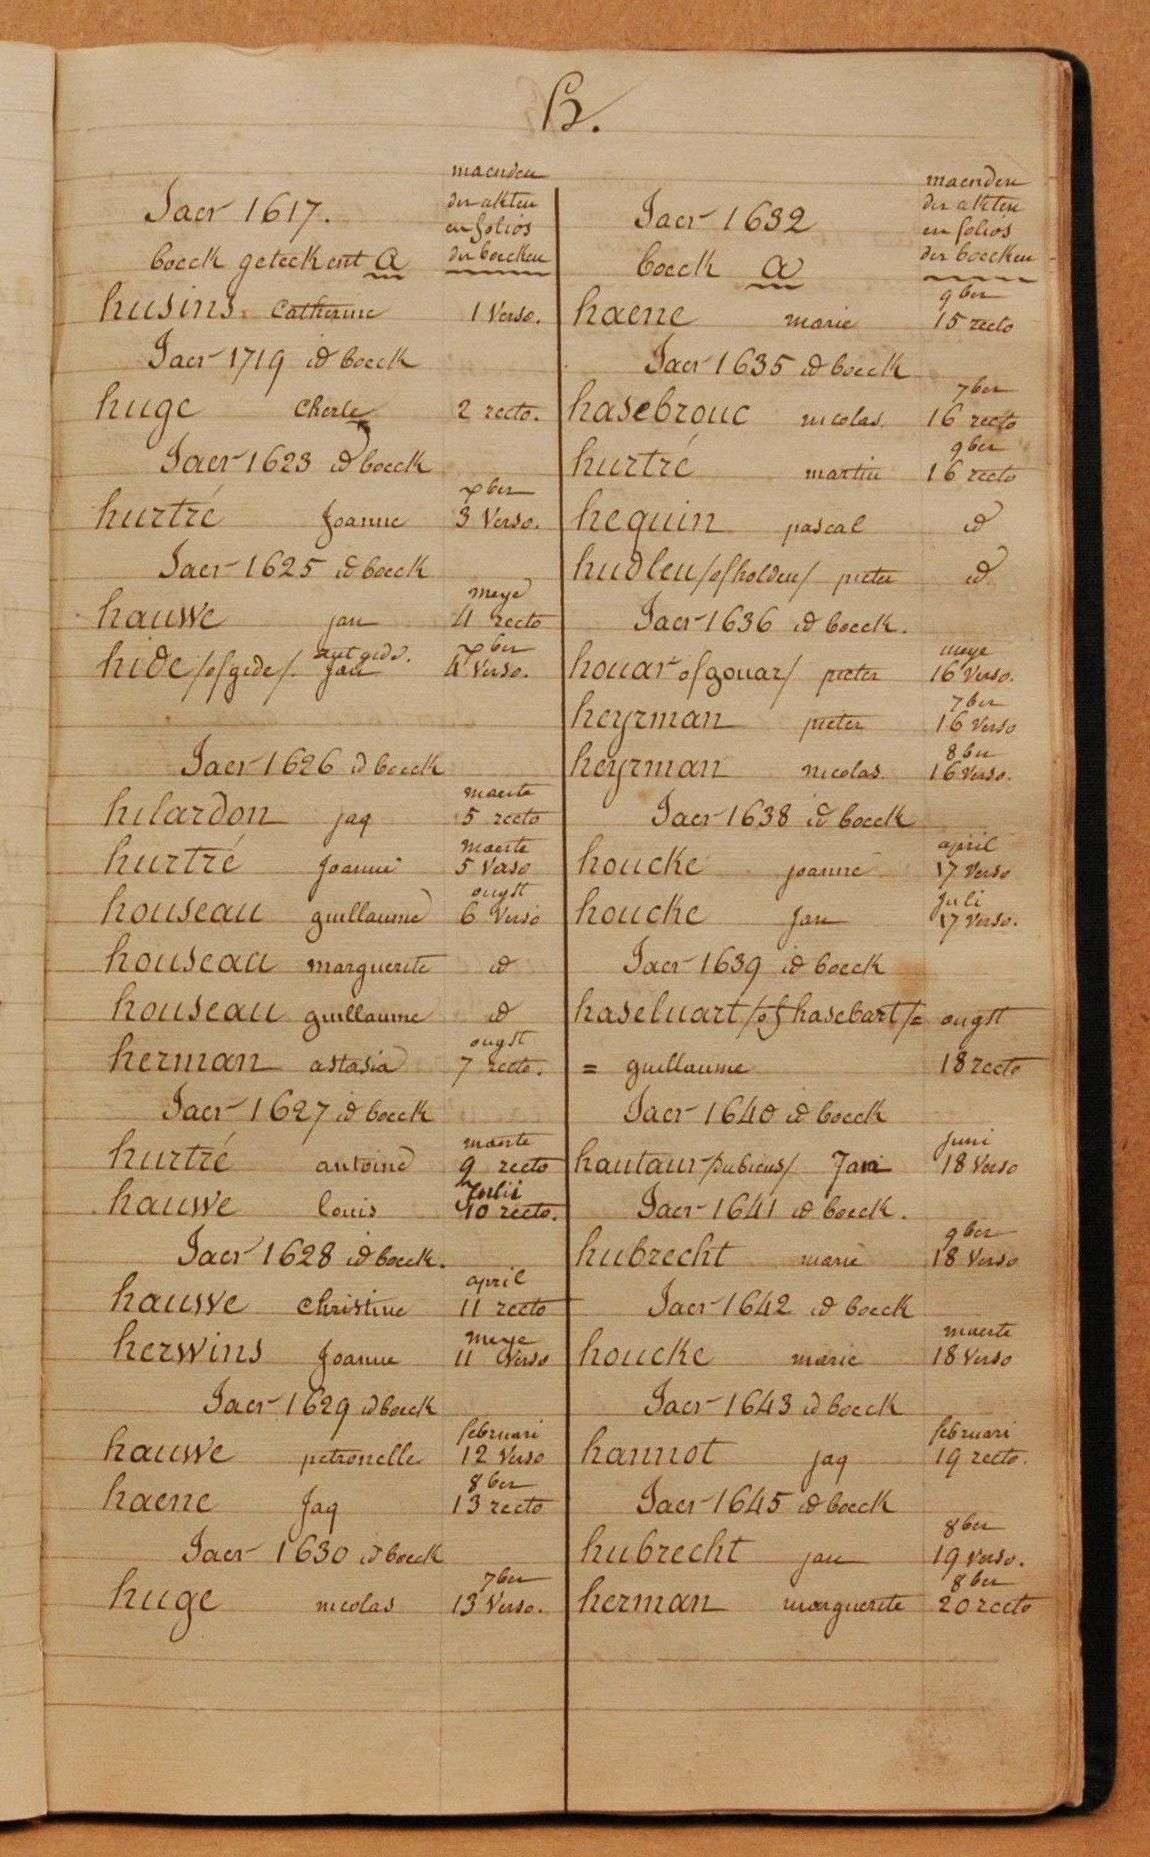 H.
maenden
der akten
en folios
der boecken
Jaer 1617.
boeck geteekent A
husins Catherine 1 Verso.
Jaer 1719 id boeck
huge Cherle 2 recto.
Jaer 1623 id boeck
xber
hurtré Joanne 3 Verso.
Jaer 1625 id boeck
meye
hauwe jan 4 recto
xber
hide /of gide/. Jan 4 Verso.
Jaer 1626 id boeck
maerte
hilardon jaq 5 recto
maerte
hurtré Joanne 5 Verso
ougst
houseau guillaume 6 Verso
houseau marguerite id
houseau guillaume id
ougst
herman astasia 7 recto.
Jaer 1627 id boeck
maerte
hurtré antoine 9 recto
Julii
hauwe louis 10 recto.
Jaer 1628 id boeck.
april
hauwe Christine 11 recto
meye
herwins Joanne 11 Verso
Jaer 1629 id boeck
februari
hauwe petronelle 12 Verso
8ber
haene Jaq 13 recto
Jaer 1630 id boeck
7ber
huge nicolas 13 Verso.
maenden
der akten
en folios
der boecken
Jaer 1632
boeck A
9ber
haene marie 15 recto
Jaer 1635 id boeck
7ber
hasebrouc nicolas. 16 recto
9ber
hurtré martin 16 recto
hequin pascal id
hudleu /of holdeu/ pieter id
Jaer 1636 id boeck.
meye
houar of gouar/ pieter 16 Verso.
7ber
heyrman pieter 16 Verso
8ber
heyrman nicolas. 16 Verso.
Jaer 1638 id boeck
april
houcke joanne 17 Verso
Juli
houcke Jan 17 Verso.
Jaer 1639 id boeck
haseluart /of hasebart/= ougst
= guillaume 18 recto
Jaer 1640 id boeck
Juni
hautaur /dubieus/ Jan 18 Verso
Jaer 1641 id boeck.
9ber
hubrecht marie 18 Verso
Jaer 1642 id boeck
maerte
houcke marie 18 Verso
Jaer 1643 id boeck
februari
hannot jaq 19 recto.
Jaer 1645 id boeck
8ber
hubrecht jan 19 Verso.
8ber
herman marguerite 20 recto